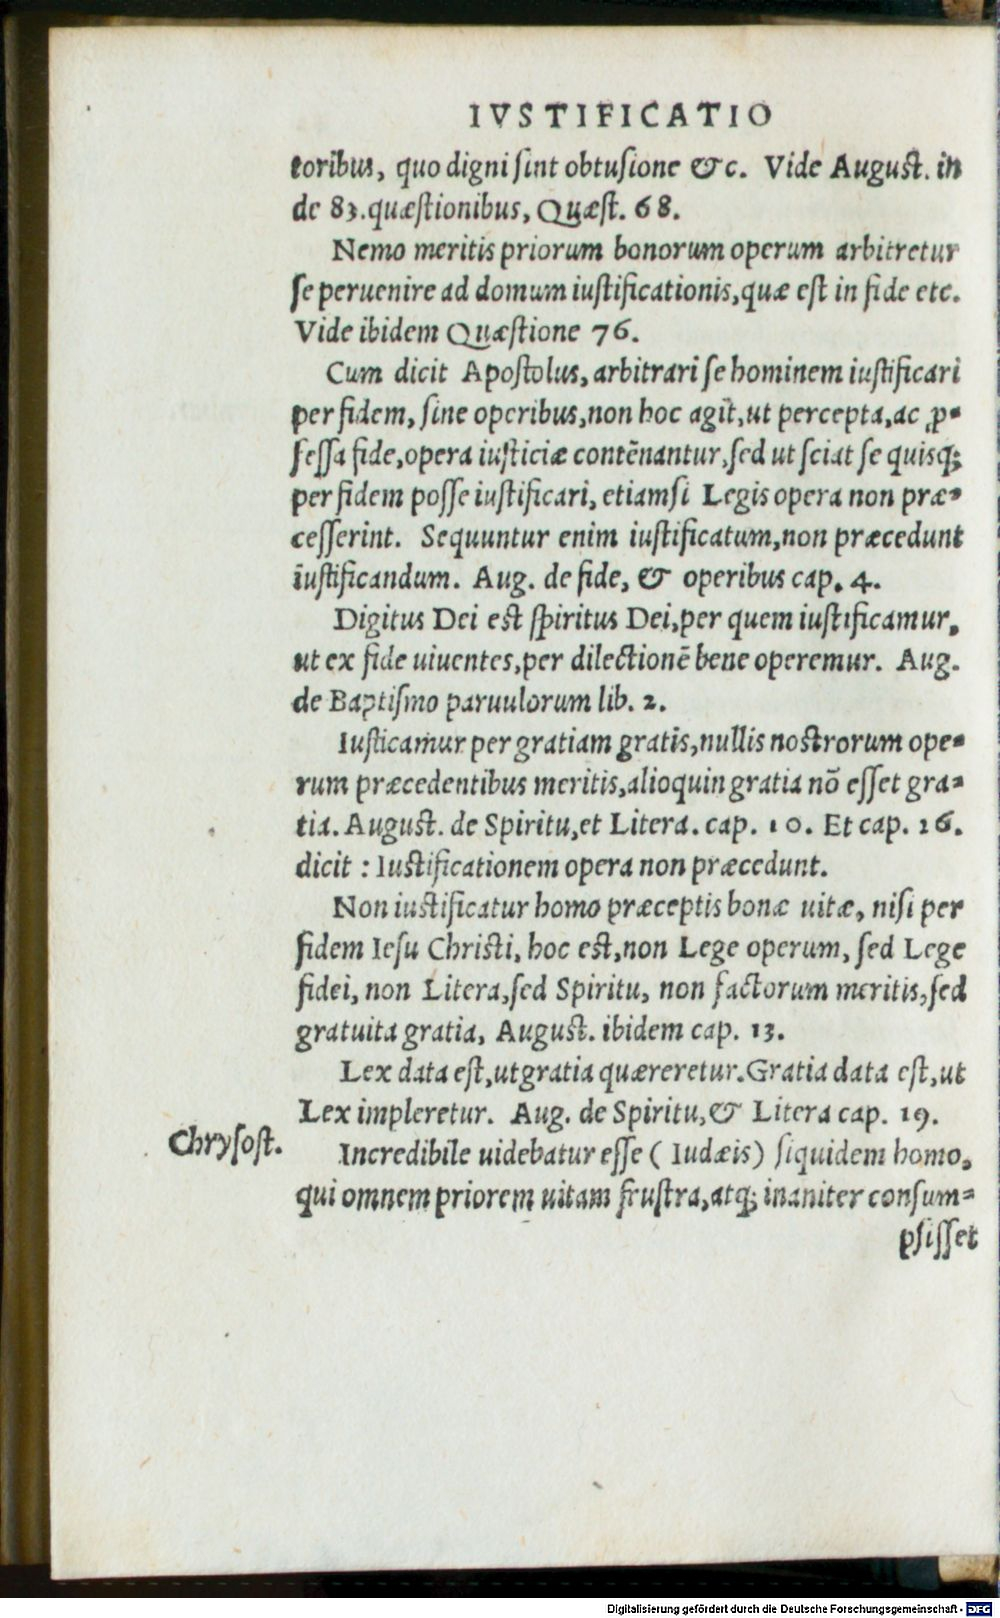 IVSTIFICATIO
toribus, quo digni ſint obtuſione &c. Vide Auguſt. in
de 83.quæſtionibus, Quæſt. 68.
Nemo meritis priorum bonorum operum arbitretur
ſe peruenire ad domum iuſtificationis,quæ eſt in fide etc.
Vide ibidem Quæſtione 76.
Cum dicit Apoſtolus, arbitrari ſe hominem iuſtificari
per fidem, ſine operibus,non hoc agit,ut percepta,ac ꝓ-
feſſa fide,opera iuſticiæ contẽnantur,ſed ut ſciat ſe quisq;
per fidem poſſe iuſtificari, etiamſi Legis opera non præ-
ceſſerint. Sequuntur enim iuſtificatum,non præcedunt
iuſtificandum. Aug. de fide, & operibus cap. 4.
Digitus Dei eſt ſpiritus Dei,per quem iuſtificamur,
ut ex fide uiuentes,per dilectionẽ bene operemur. Aug.
de Baptiſmo paruulorum lib. 2.
Iuſticamur per gratiam gratis,nullis noſtrorum ope-
rum præcedentibus meritis,alioquin gratia nõ eſſet gra-
tia. Auguſt. de Spiritu,et Litera. cap. 10. Et cap. 26.
dicit : Iuſtificationem opera non præcedunt.
Non iuſtificatur homo præceptis bonæ uitæ, niſi per
fidem Ieſu Chriſti, hoc eſt,non Lege operum, ſed Lege
fidei, non Litera,ſed Spiritu, non factorum meritis,ſed
gratuita gratia, Auguſt. ibidem cap. 13.
Lex data eſt,ut gratia quæreretur.Gratia data eſt,ut
Lex impleretur. Aug. de Spiritu,& Litera cap. 19.
Chryſoſt.
Incredibile uidebatur eſſe ( Iudæis) ſiquidem homo,
qui omnem priorem uitam fruſtra,atq; inaniter conſum-
pſiſſet
Digitalisierung gefördert durch die Deutsche Forschungsgemeinschaft - DFG